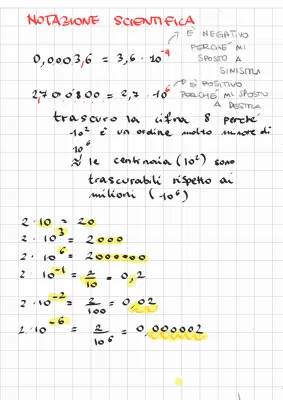 NOTAZIONE SCIENTIFICA
è NEGATIVO
PERCHÉ MI
SPOSTO A
SINISTRA
0,0003,6 = 3,6 · 10⁻⁴
è POSITIVO
PERCHÉ MI SPOSTO
A DESTRA
2,700800 = 2,7 · 10⁶
trascuro la cifra 8 perché
10² è un ordine molto minore di
10⁶
le centinaia (10²) sono
trascurabili rispetto ai
milioni (10⁶)
2 · 10 = 20
2 · 10³ = 2000
2 · 10⁶ = 2000000
2 · 10⁻¹ = 2/10 = 0,2
2 · 10⁻² = 2/100 = 0,02
2 · 10⁻⁶ = 2/10⁶ = 0,000002